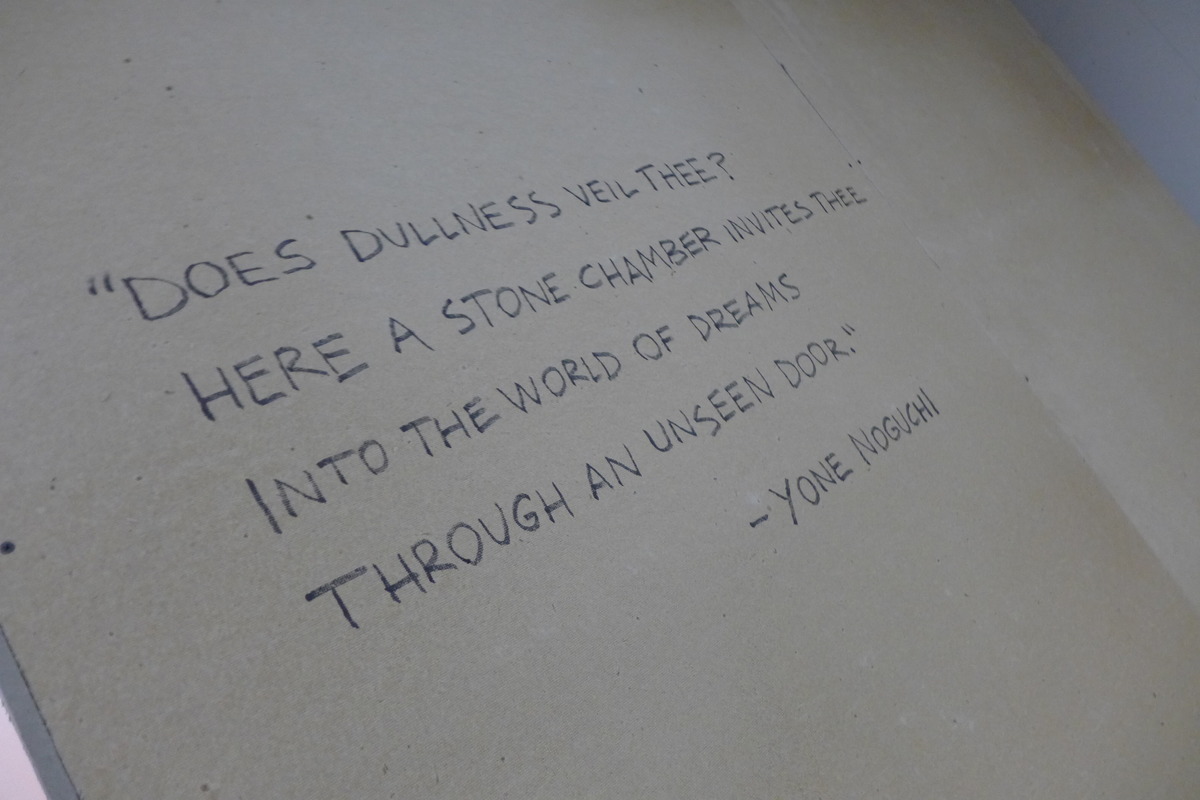 "DOES DULLNESS VEIL THEE?
HERE A STONE CHAMBER INVITES THEE"
INTO THE WORLD OF DREAMS
THROUGH AN UNSEEN DOOR."
-YONE NOGUCHI